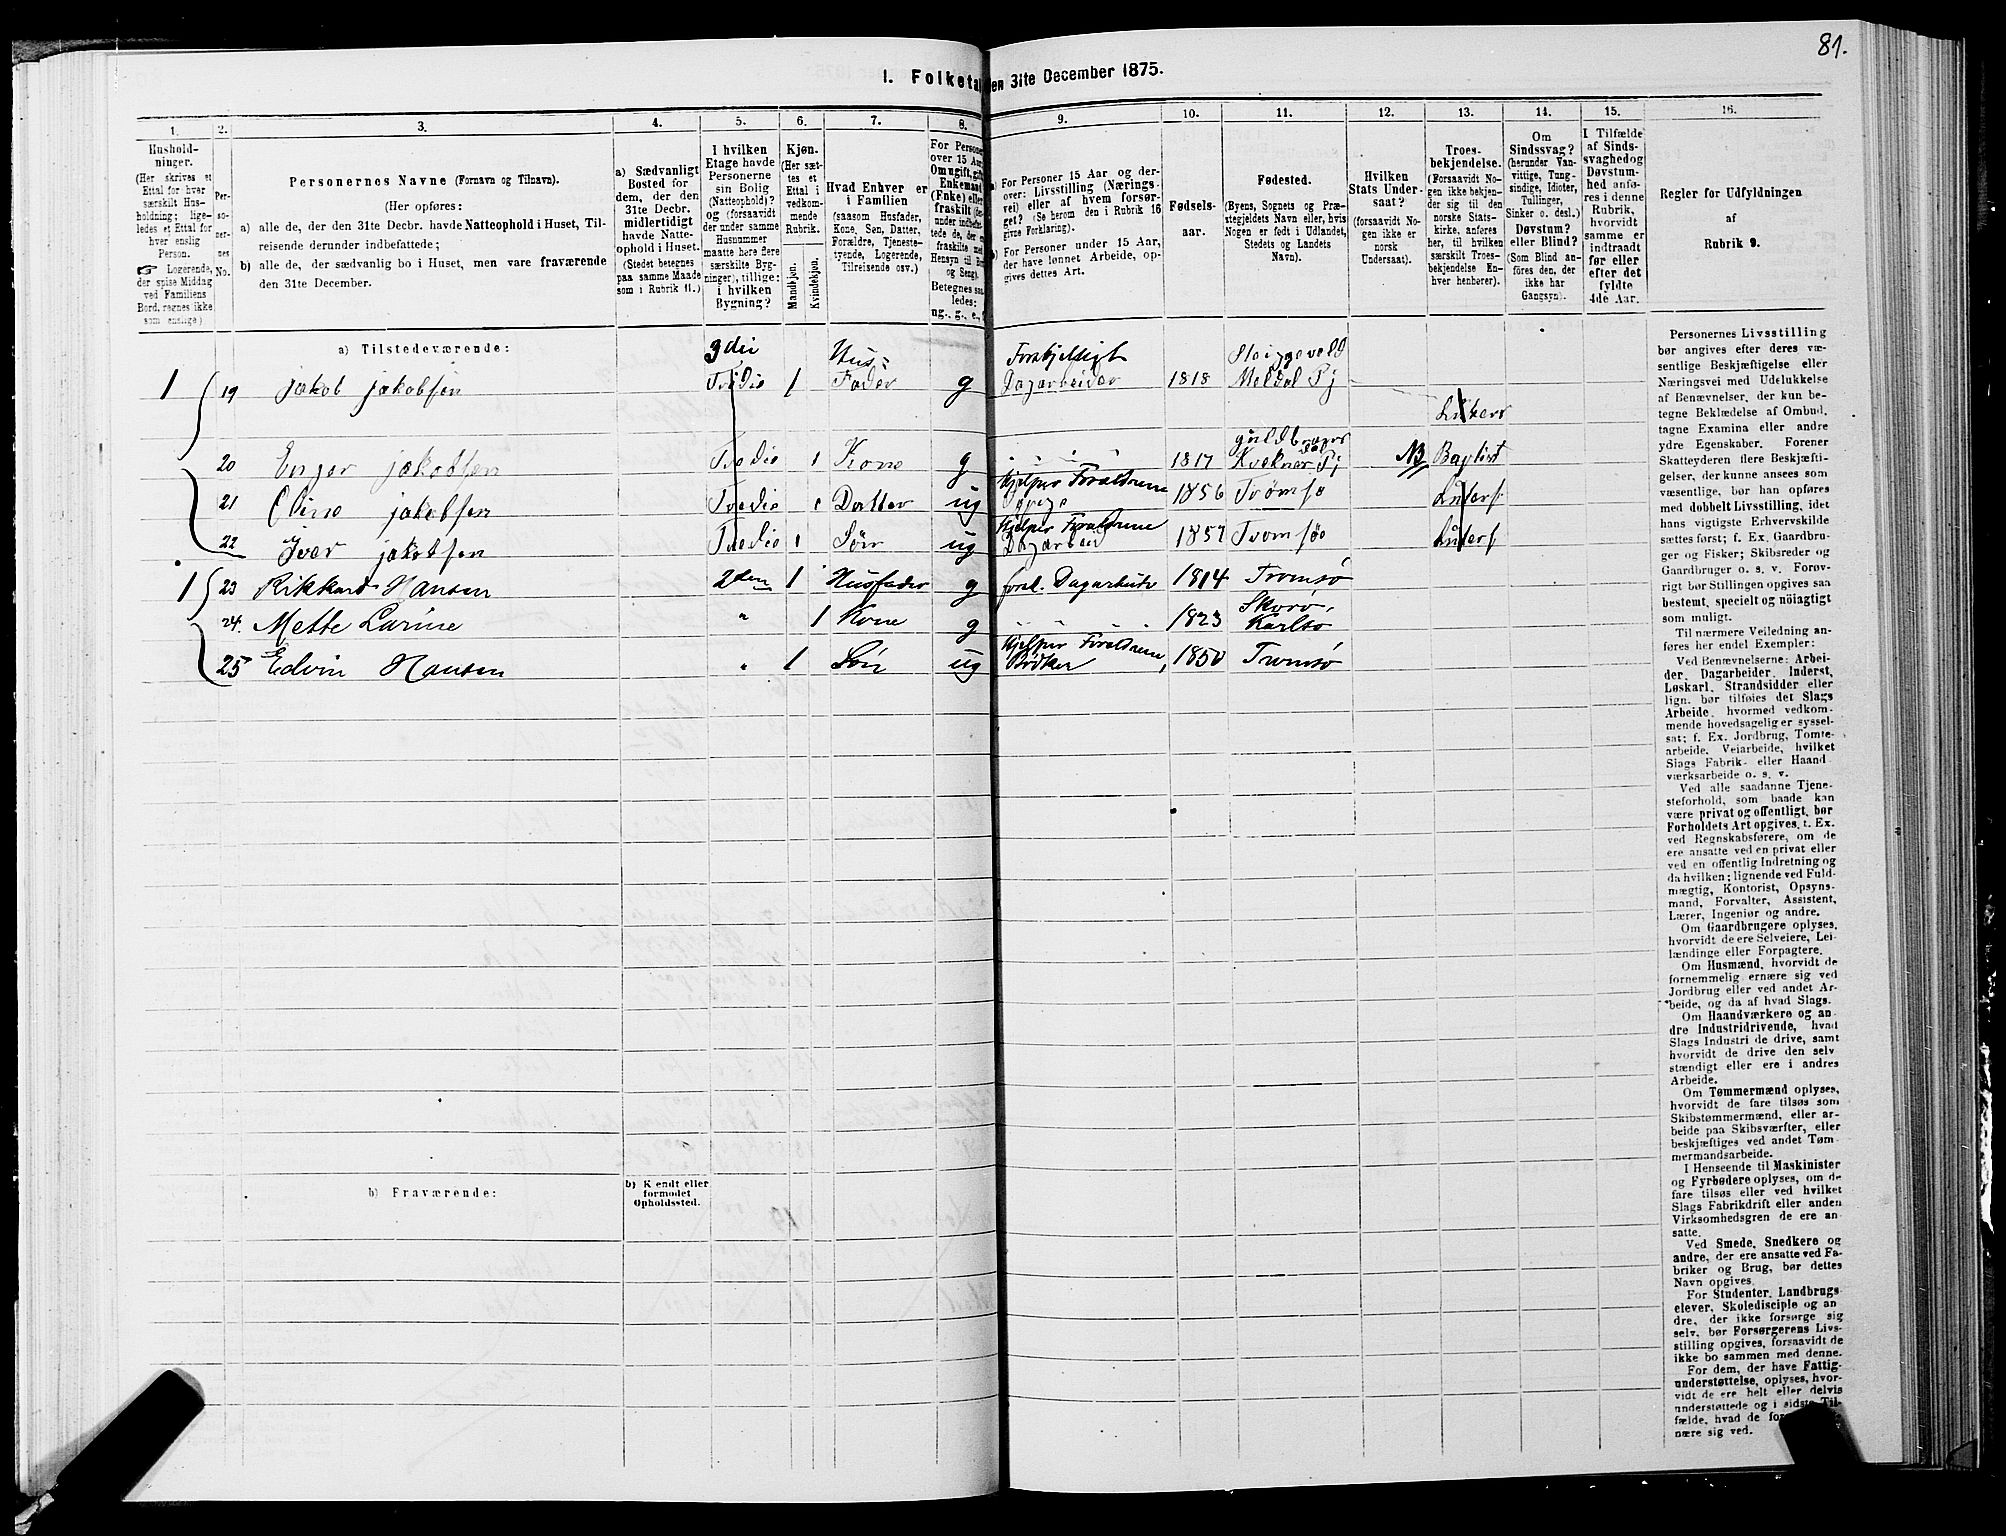 81.
1. Folketal den 31te December 1875.
1. 2. 3. 4. 5. 6. 7. 8. 9. 10. 11. 12. 13. 14. 15. 16.
Hushold-
ninger.
(Her skrives et
Ettal for hver
særskilt Hus-
holdning; lige-
ledes et Ettal for
hver enslig
Person.
☞ Logerende,
der spise Middag
ved Familiens
Bord, regnes ikke
som enslige)
Per-
so-
ner-
nes
No.
Personernes Navne (Fornavn og Tilnavn).
(Her opføres:
a) alle de, der den 31te Decbr. havde Natteophold i Huset, Til-
reisende derunder indbefattede;
b) alle de, der sædvanlig bo i Huset, men vare fraværende
den 31te December.
a) Sædvanligt
Bosted for
dem, der den
31te Decbr.
midlertidigt
havde Natte-
ophold i Huset.
(Stedet betegnes
paa samme Maade
som i Rubrik 11.)
I hvilken
Etage havde
Personerne
sin Bolig
(Natteophold)?
og (forsaavidt
der under samme
Husnummer
maatte høre flere
særskilte Byg-
ninger), tillige:
i hvilken
Bygning?
Kjøn.
(Her sæt-
tes et
Ettal i
vedkom-
mende
Rubrik.
Mandkjøn.
Kvindekjøn.
Hvad Enhver er
i Familien
(saasom Husfader,
Kone, Søn, Datter,
Forældre, Tjeneste-
tyende, Logerende,
Tilreisende osv.)
For Personer
over 15 Aar:
Om ugift, gift,
Enkemand
(Enke) eller
fraskilt
a) For Personer 15 Aar og der-
over: Livsstilling (Nærings-
vei) eller af hvem forsør-
get? (Se herom den i Rubrik 16
givne Forklaring).
b) For Personer under 15 Aar,
der have lønnet Arbeide, op-
gives dettes Art.
Fødsels-
aar.
Fødested.
(Byens, Sognets og Præ-
stegjeldets Navn eller, hvis
Nogen er født i Udlandet,
Stedets og Landets
Navn).
Hvilken
Stats Under-
saat?
(forsaavidt No-
gen ikke er
norsk
Undersaat).
Troes-
bekjendelse.
(Forsaavidt No-
gen ikke bekjen-
der sig til den
norske Stats-
kirke, anføres
her, til hvilken
særskilt Troes-
bekjendelse En-
hver henhører).
Om
Sindssvag?
(herunder Van-
vittige, Tung-
sindige, Idioter,
Tullinger,
Sinker o. desl.)
Døvstum?
eller Blind?
(Som Blind an-
føres den, der
ikke har
Gangsyn).
I Tilfælde
af Sinds-
svaghed og
Døvstum-
hed anfø-
res i denne
Rubrik,
hvorvidt
samme er
indtraadt
før eller
efter det
fyldte
4de Aar.
Regler for Udfyldningen
af
Rubrik 9.
a) Tilstedeværende:
3die Hus= Forskjelligt
1 19 Jakob Jakobsen Tredie 1 Fader g Dagarbeider 1818 Meldal Pj
Luthers
20 Enger Jakobsen Tredie 1 Kone g 1817 NB Baptist
Hjelper Foreldrene
21 Oline Jakobsen Tredie 1 Datter ug 1856 Tromsø Luthers
Hjelper Foreldrene
22 Iver Jakobsen Tredie 1 Sön ug Dagarbeid 1857 Tromsøe Luthers
1 23 Rikkard Hansen 2den 1 Husfader g forsk. Dagarbeide 1814 Tromsö
24. Mette Larine " 1 Kone g 1823 Karlsö
Hjelper Foreldrene
25 Edvin Hansen " 1 Sön ug Bödker, 1850 Tromsö
b) Fraværende:
b) Kjendt eller
formodet
Opholdssted.
Personernes Livsstilling
bør angives efter deres væ-
sentlige Beskjæftigelse eller
Næringsvei med Udelukkelse
af Benævnelser, der kun be-
tegne Beklædelse af Ombud,
tagne Examina eller andre
ydre Egenskaber. Forener
Skatteyderen flere Beskjæfti-
gelser, der kunne ansees som
væsentlige, bør han opføres
med dobbelt Livsstilling, idet
hans vigtigste Erhvervskilde
sættes først; f. Ex. Gaardbru-
ger og Fisker; Skibsreder og
Gaardbruger o. s. v. Forøv-
rigt bør Stillingen opgives saa
bestemt, specielt og nöiagtigt
som muligt.
Til nærmere Veiledning an-
føres her endel Exempler:
Ved Benævnelserne: Arbei-
der, Dagarbeider, Inderst,
Løskarl, Strandsidder eller
lign. bør tilføies det Slags
Arbeide, hvormed vedkom-
mende hovedsagelig er syssel-
sat; f. Ex. Jordbrug, Tomte-
arbeide, Veiarbeide, hvilket
Slags Fabrik- eller Haand
værksarbeide o. s. v.
Ved alle saadanne Tjene-
steforhold, som baade kan
være privat og offentligt, bør
Forholdets Art opgives, t. Ex.
ved Regnskabsførere, om de
ere ansatte ved en privat eller
ved en offentlig Indretning og
da hvilken; lignende ved Fuld-
mægtig, Kontorist, Opsyns-
mand, Forvalter, Assistent,
Lærer, Ingeniør og andre.
Om Gaardbrugere oplyses,
hvorvidt de ere Selveiere, Lei-
lændinge eller Forpagtere.
Om Husmænd, hvorvidt de
fornemmelig ernære sig ved
Jordbrug eller ved andet Ar-
beide, og da af hvad Slags.
Om Haandværkere og an-
dre Industridrivende, hvad
Slags Industri de drive, samt
hvorvidt de drive den selv
stændigt eller ere i andres
Arbeide.
Om Tømmermænd oplyses,
hvorvidt de fare tilsøs som
Skibstømmermænd, eller ar-
beide paa Skibsværfter, eller
beskjæftiges ved andet Tøm-
mermandsarbeide.
I Henseende til Maskinister
og Fyrbødere oplyses, om de
fare tilsøs eller ved hvilket
Slags Fabrikdrift eller anden
Virksomhedsgren de ere an-
satte.
Ved Smede, Snedkere og
andre, der ere ansatte ved Fa-
briker og Brug, bør dettes
Navn opgives.
For Studenter, Landbrugs
elever, Skoledisciple og an
dre, der ikke forsørge sig
selv, bør Forsørgerens Livs-
stilling opgives, forsaavidt de
ikke bo sammen med denne.
For dem, der have Fattig-
understøttelse, oplyses, hvor-
vidt de ere helt eller delvis
understøttede og i sidste Til-
fælde, hvad de
nære sig ved.